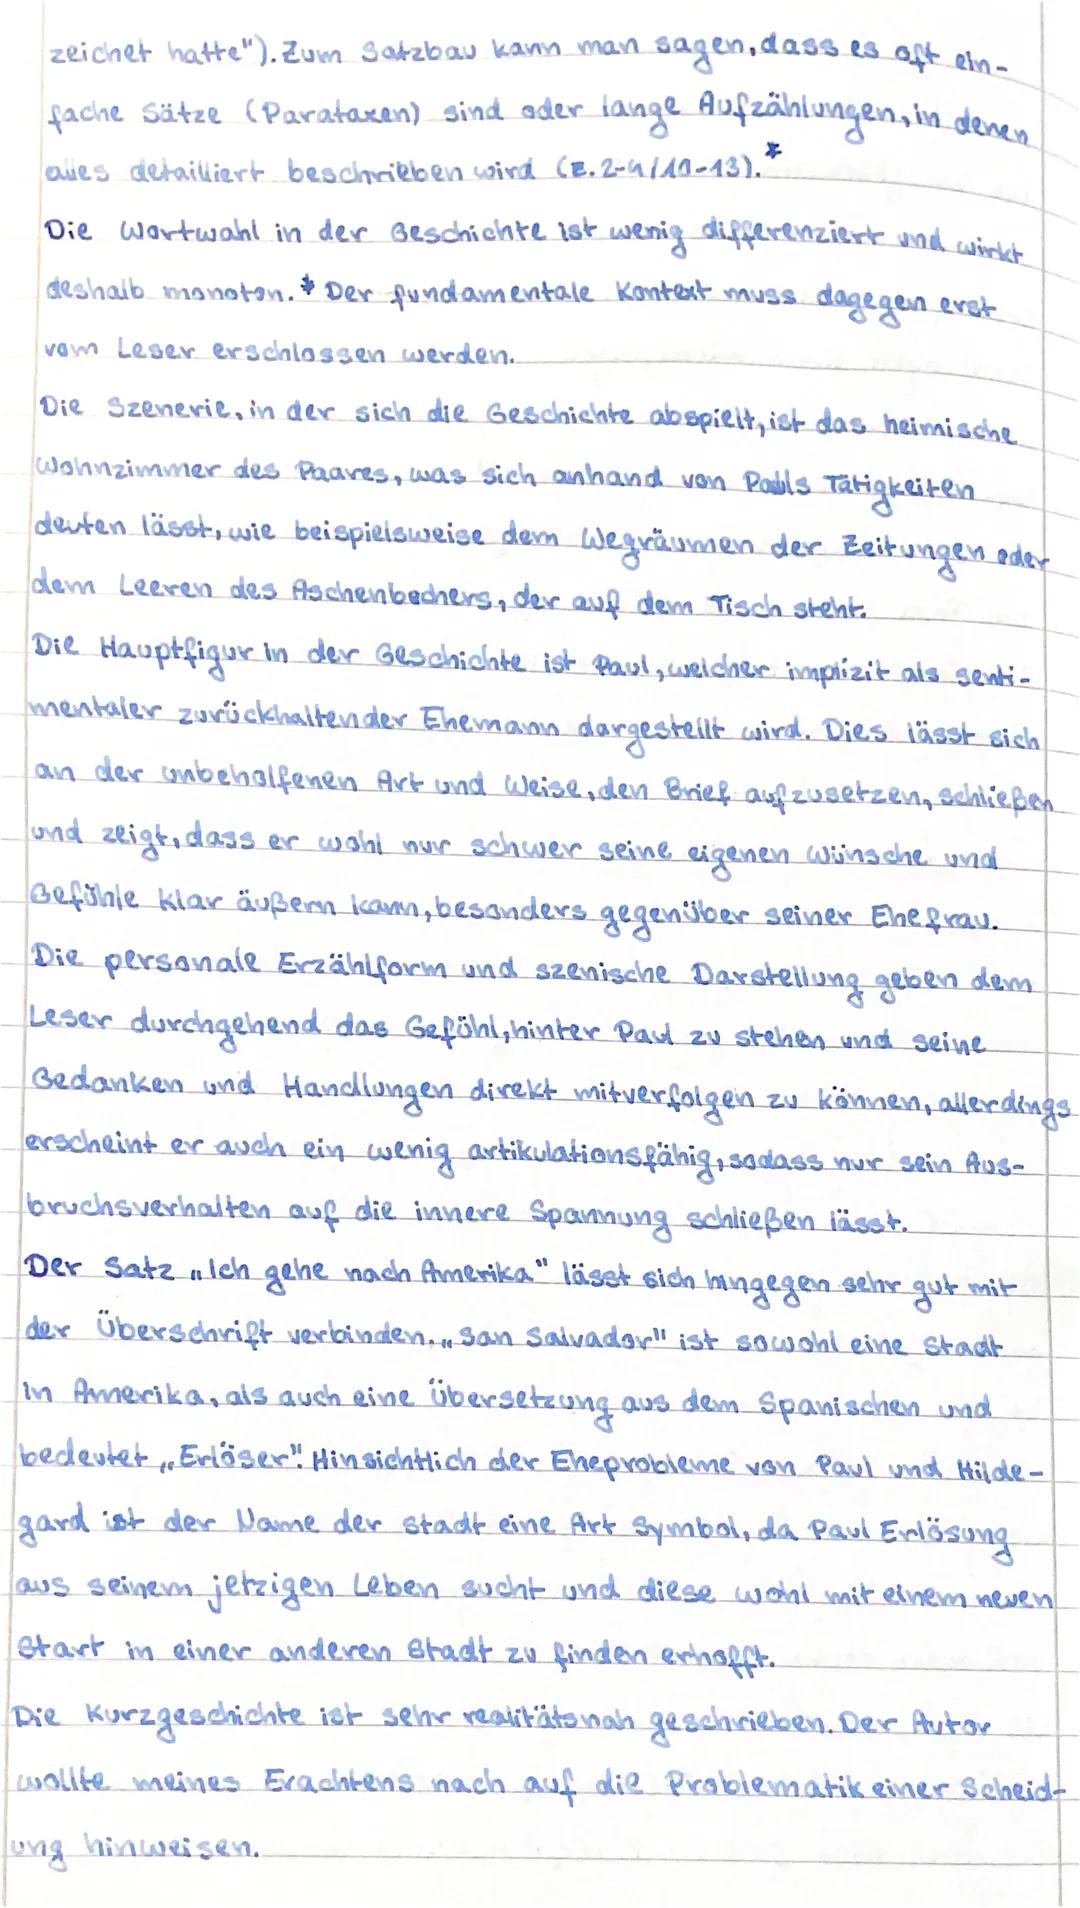 zeichet hatte"). Zum Satzbau kann man sagen, dass es oft ein-
fache Sätze (Parataxen) sind oder lange Aufzählungen, in denen
alles detailliert beschrieben wird (Z. 2-4/10-13).*
Die Wortwahl in der Geschichte ist wenig differenziert und wirkt
deshalb monoton.* Der fundamentale Kontext muss dagegen erst
vom Leser erschlossen werden.
Die Szenerie, in der sich die Geschichte abspielt, ist das heimische
Wohnzimmer des Paares, was sich anhand von Pauls Tätigkeiten
deuten lässt, wie beispielsweise dem Wegräumen der Zeitungen oder
dem Leeren des Aschenbechers, der auf dem Tisch steht.
Die Hauptfigur in der Geschichte ist Paul, welcher implizit als senti-
mentaler zurückhaltender Ehemann dargestellt wird. Dies lässt sich
an der unbeholfenen Art und Weise, den Brief aufzusetzen, schließen
und zeigt, dass er wohl nur schwer seine eigenen Wünsche und
Gefühle klar äußern kann, besonders gegenüber seiner Ehefrau.
Die personale Erzählform und szenische Darstellung geben dem
Leser durchgehend das Gefühl, hinter Paul zu stehen und seine
Gedanken und Handlungen direkt mitverfolgen zu können, allerdings
erscheint er auch ein wenig artikulationsfähig, sodass nur sein Aus-
bruchsverhalten auf die innere Spannung schließen lässt.
Der Satz „Ich gehe nach Amerika" lässt sich hingegen sehr gut mit
der Überschrift verbinden. „San Salvador" ist sowohl eine Stadt
in Amerika, als auch eine Übersetzung aus dem Spanischen und
bedeutet „Erlöser". Hinsichtlich der Eheprobleme von Paul und Hilde-
gard ist der Name der Stadt eine Art Symbol, da Paul Erlösung
aus seinem jetzigen Leben sucht und diese wohl mit einem neuen
Start in einer anderen Stadt zu finden erhofft.
Die Kurzgeschichte ist sehr realitätsnah geschrieben. Der Autor
wollte meines Erachtens nach auf die Problematik einer Scheid-
ung hinweisen.